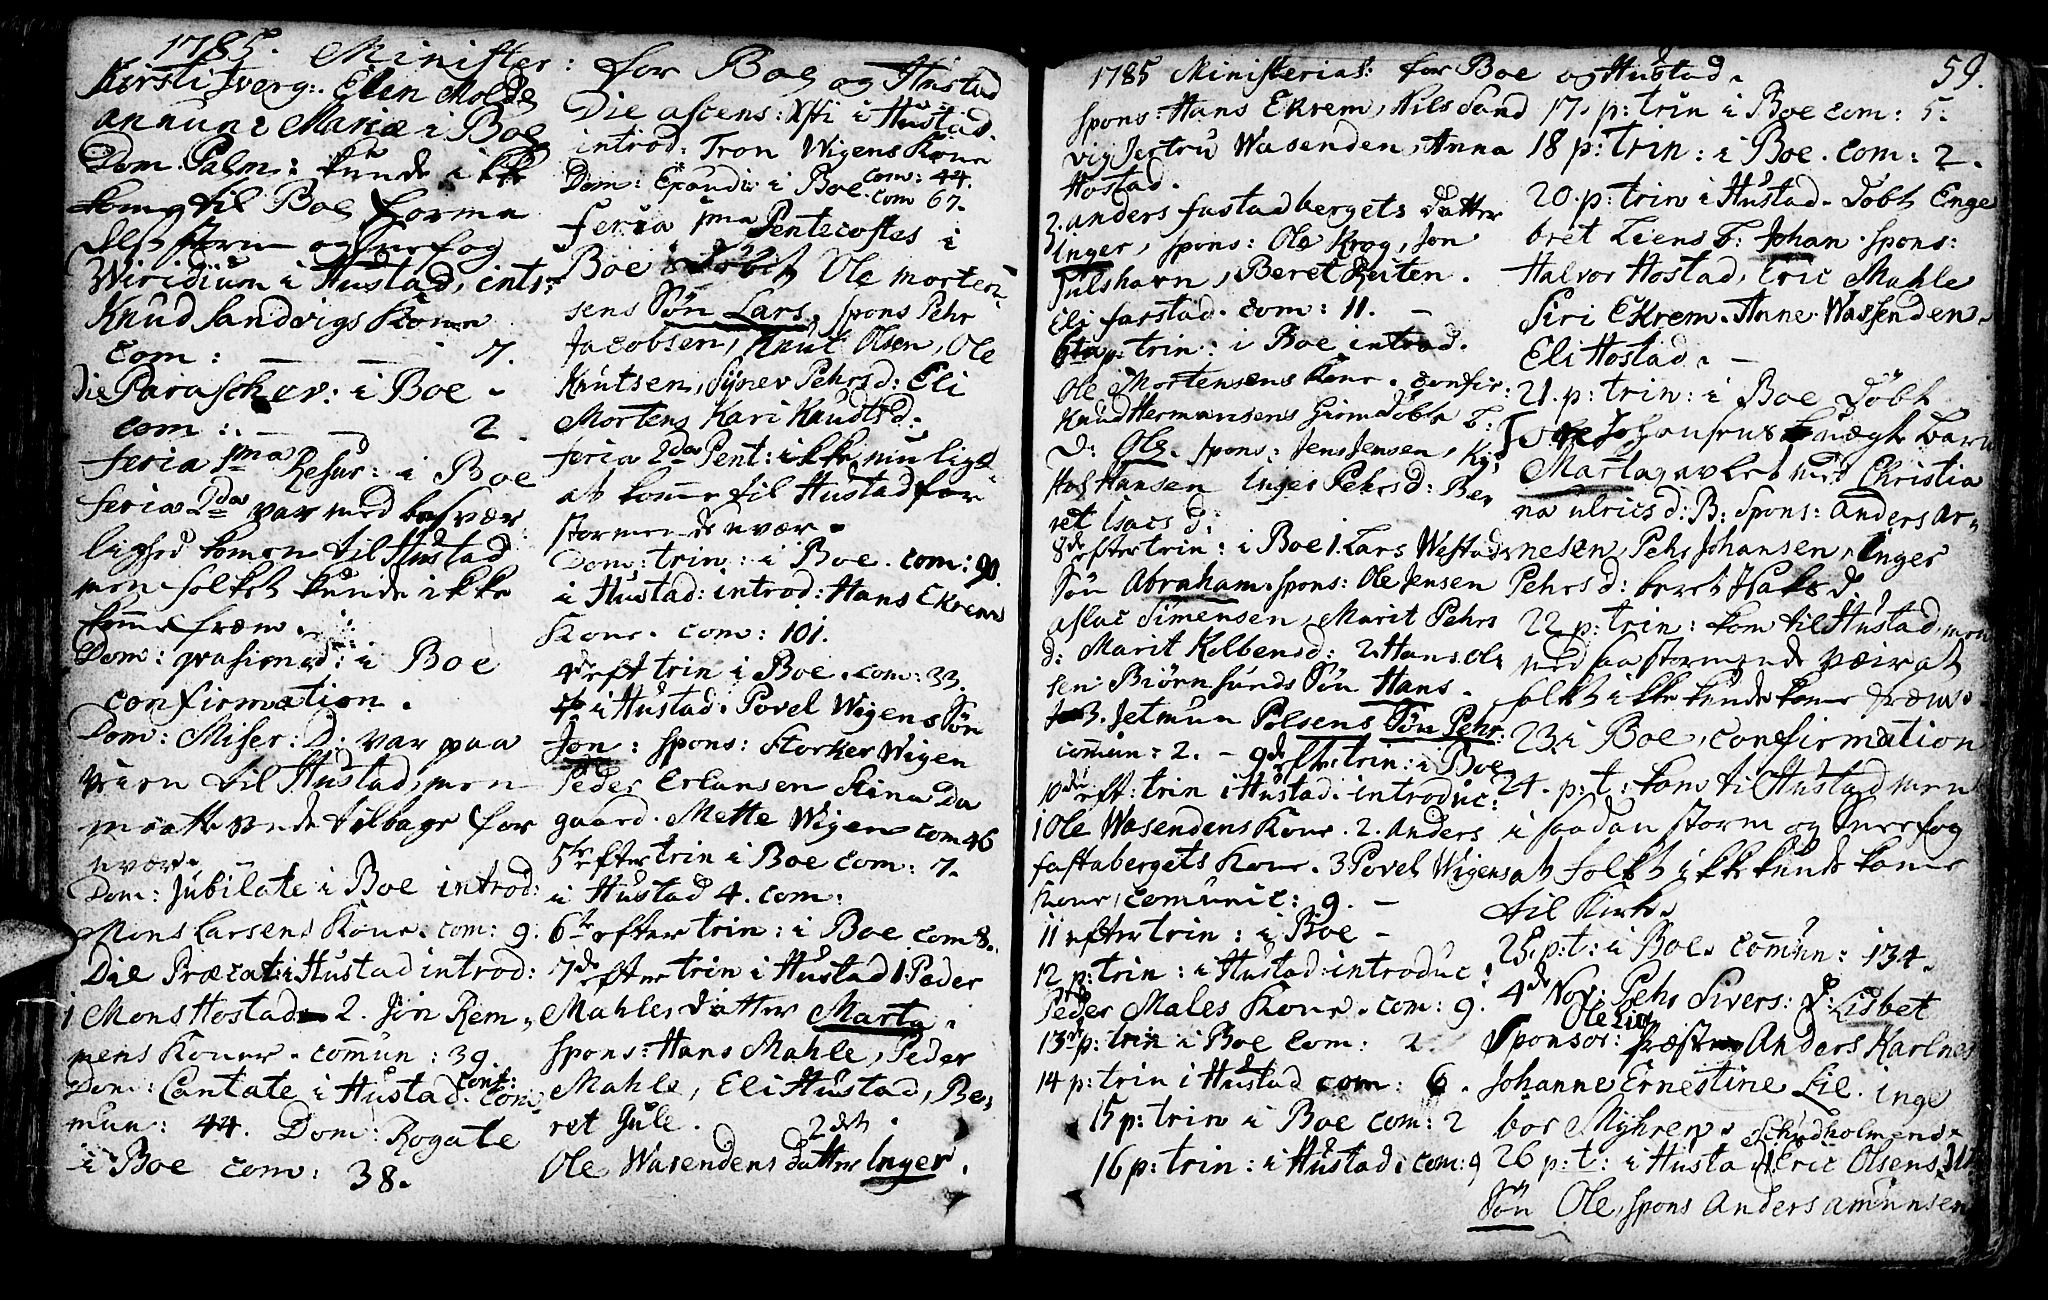 1785. Minister: for Boe og Hustad
Kirsti Iverg: Elen Molde
annunc Mariæ i Boe
Dom. Palm: kunde ikke
kome til Boe forme
delst storm og snefog
Wiridium i Hustad, intr:
Knud Sandvigs Kone
com: — — 7.
die Parascheve: i Boe.
com: — — 2.
feria 1ma Resur: i Boe
feria 2da var med besvær
lighed komen til Hustad
men folket kunde ikke
komme frem.
Dom: qvasimod: i Boe
confirmation.
Dom: Miser: D: var paa
veien til Hustad, men
maatte vende tilbage for
uvær.
Dom: Jubilate i Boe introd:
Mons Larsens Kone. com: 9.
Die Præcat: i Hustad introd:
1 Mons Hostad 2. Jon Rem
mens Koner. commun: 39.
Dom: Cantate i Hustad. conf: com
mun: 44. Dom: Rogate
i Boe com: 38.
Die ascens: Xsti i Hustad.
introd: Tron Wigens Kone
com: 44.
Dom: Exaudi: i Boe. com 67.
Feria 1ma Pentecostes i
Boe døbt Ole morten
sens Søn Lars, spons Pehr
Jacobsen, Knut Olsen, Ole
Knutsen, Synev Pehrsd: Eli
Mortens Kari Knudtsd:
feria 2da Pent: ikke muligt
at komme til Hustad for
stormende uvær.
Dom: trin: i Boe. com: 90.
i Hustad: introd: Hans Ekrem
Kone. com: 101.
eft trin i Boe. com: 33.
i Hustad. Povel Wigens Søn
Jon: spons: Storker Wigen
Peder Erlansen Stina Da
gaard. Mette Wigen com 46
5te efter trin i Boe com: 7.
i Hustad 4. com:
6te efter trin: i Boe com 8.
7de efter trin i Hustad 1. Peder
Mahles datter Marta.
spons: Hans Mahle, Peder
Mahle, Eli Hustad, Be
ret Jule. 2det.
Ole Wasendens datter Inger.
1785 Ministerial: for Boe og Hustad. 59.
spons: Hans Ekrem, Nils Sand
vig Jertru Wasenden, Anna
Hostad.
3. anders fustadbergets datter
Inger, spons: Ole Krog, Jon
Julshavn, Beret Reiten.
Eli farstad. com: 11. —
6te p: trin: i Boe introd.
Ole Mortensens Kone. confir:
Knud Hermansens hiemdøbte B:
d: Ole. spons: Jens Jensen,
Hansen Inger Pehrsd: Ber
ret Isacsd:
8de efter trin: i Boe 1. Lars Westads
Søn Abraham. spons: Ole Jensen
aslac Simensen, Marit Pehrs
d: Marit Kolbensd: 2. Hans Ol
sen Biørnsunds Søn Hans.
3. Jetmun Polsens Søn Pehr.
commun: 2. — 9de efter trin: i Boe
10de eft: trin i Hustad. introduc:
1 Ole Wasendens Kone. 2. Anders
fastabergets Kone. 3 Povel Wigens
Kone, comunic: 9. —
11 efter trin: i Boe —
12 p: trin: i Hustad: introduc:
Peder Males Kone. com: 9.
13 p: trin i Boe com: 2.
14 p: trin i Hustad com: 6.
15 p: trin i Boe com: 2
16 p: trin: i Hustad: com: 9
17. p: trin i Boe com: 5.
18 p: trin: i Boe. com: 2.
20. p: trin i Hustad. døbt Enge
bret Liens B: Johan. spons:
Halvor Hostad, Eric Mahle
Siri Ekrem. Anne Wassenden.
Eli Hostad. —
21. p: trin: i Boe døbt
Johansens uægte barn
Marta, avlet med Christia
na ulricsd: B: Spons: Anders Ar
nesen, Pehr Johansen, Inger
Pehrsd: beret Hansd.
22 p: trin: kom til Hustad men
med saa stormende veir at
folket ikke kunde kome frem.
23. i Boe, confirmation
24. p: t: kom til Hustad men
i saadan storm og snefog
at folket ikke kunde kome
til Kirke.
25. p: t: i Boe. commun: 134.
4de Nov: Pehr Sivers: d: Lisbet
Ole Lie
Sponsor: Anders Karlnes
Johanne Ernestine Lie. inge
bor Myhren.
26 p: t: i Hustad 1. Eric Olsens
Søn Ole, spons Anders amunsen